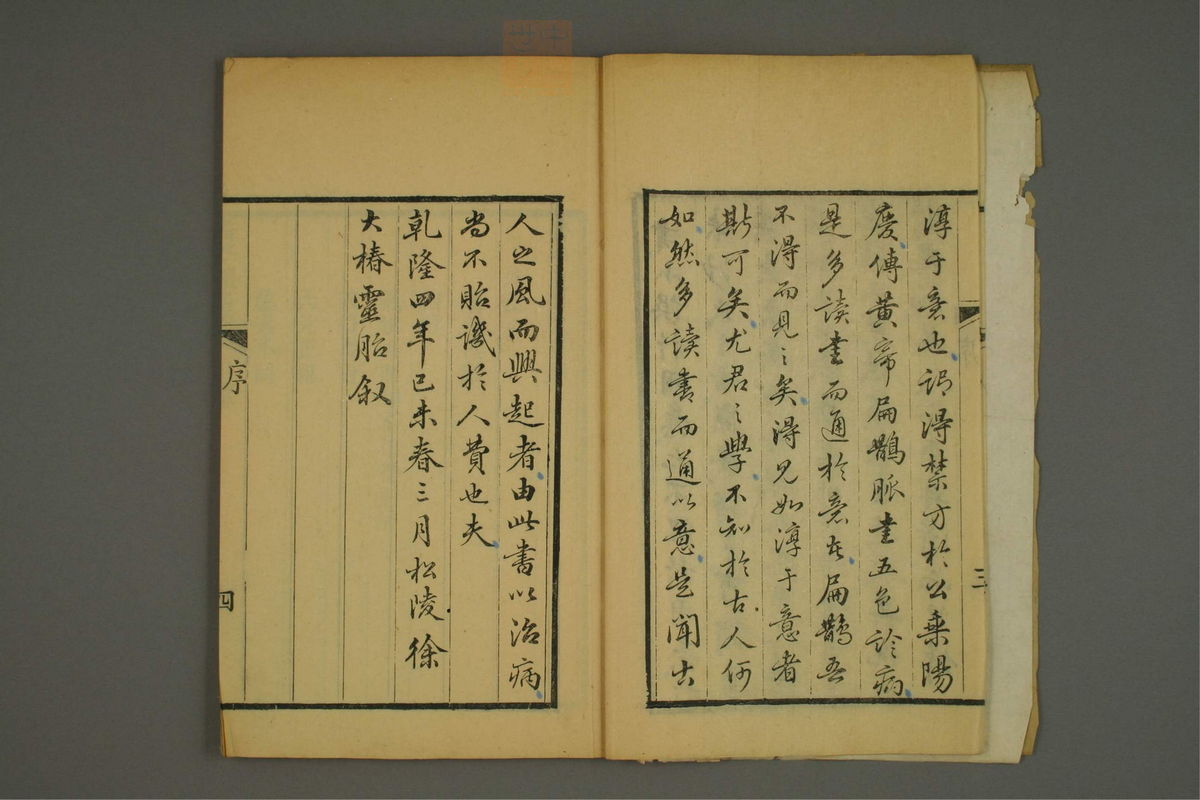 淳于意也謂得禁方於公乘陽
慶傳黃帝扁鵲脈書五色診病
是多讀書而通於意者扁鵲吾
不得而見之矣得見如淳于意者
斯可矣尤君之學不知於古人何
如然多讀書而通以意是聞古
三
人之風而興起者由此書以治病
尚不貽譏於人費也夫
乾隆四年己未春三月松陵徐
大椿靈胎敘
序
四